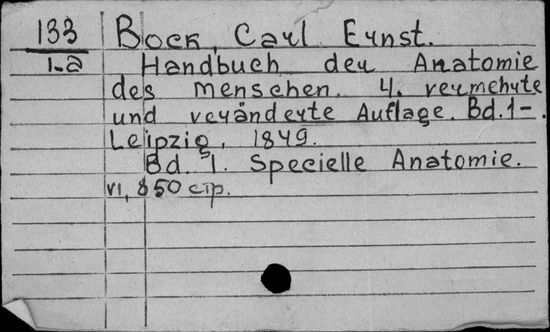 133 Bock, Carl Ernst.
1-2 Handbuch der Anatomie
des Menschen. 4. vermehrte
und veränderte Auflage. Bd. 1-.
Leipzig, 1849.
Bd. 1. Specielle Anatomie.
VI, 850 стр.